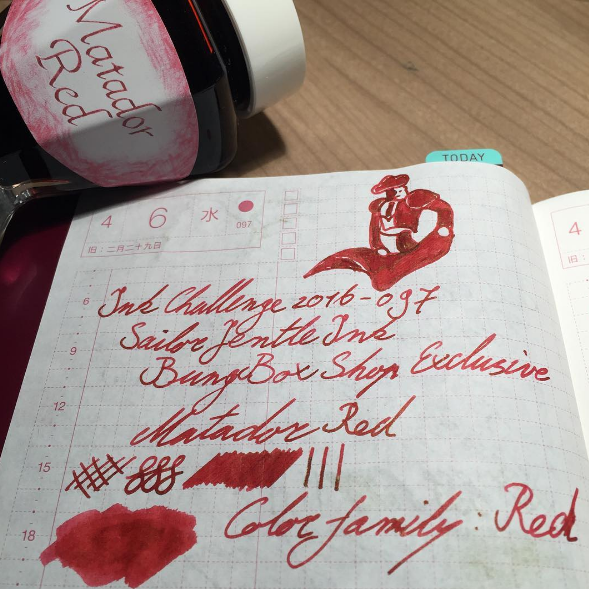 Matador
Red
TODAY
4 6 水
097
旧:二月二十九日
4
旧:
6
Ink Challenge 2016-097
9
Sailor Jentle Ink
BungBox Shop Exclusive
12
Matador Red
15
Color family: Red
18